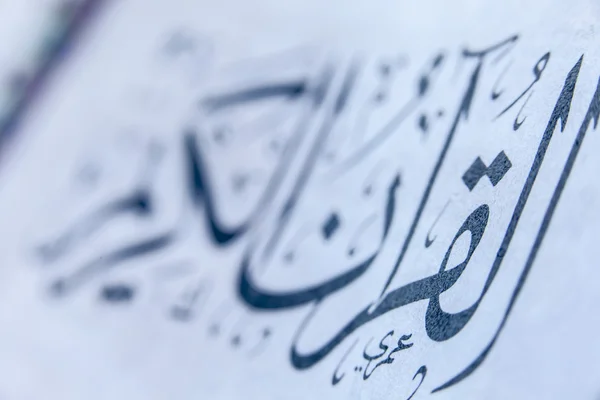 القرآن الكريم
عمري